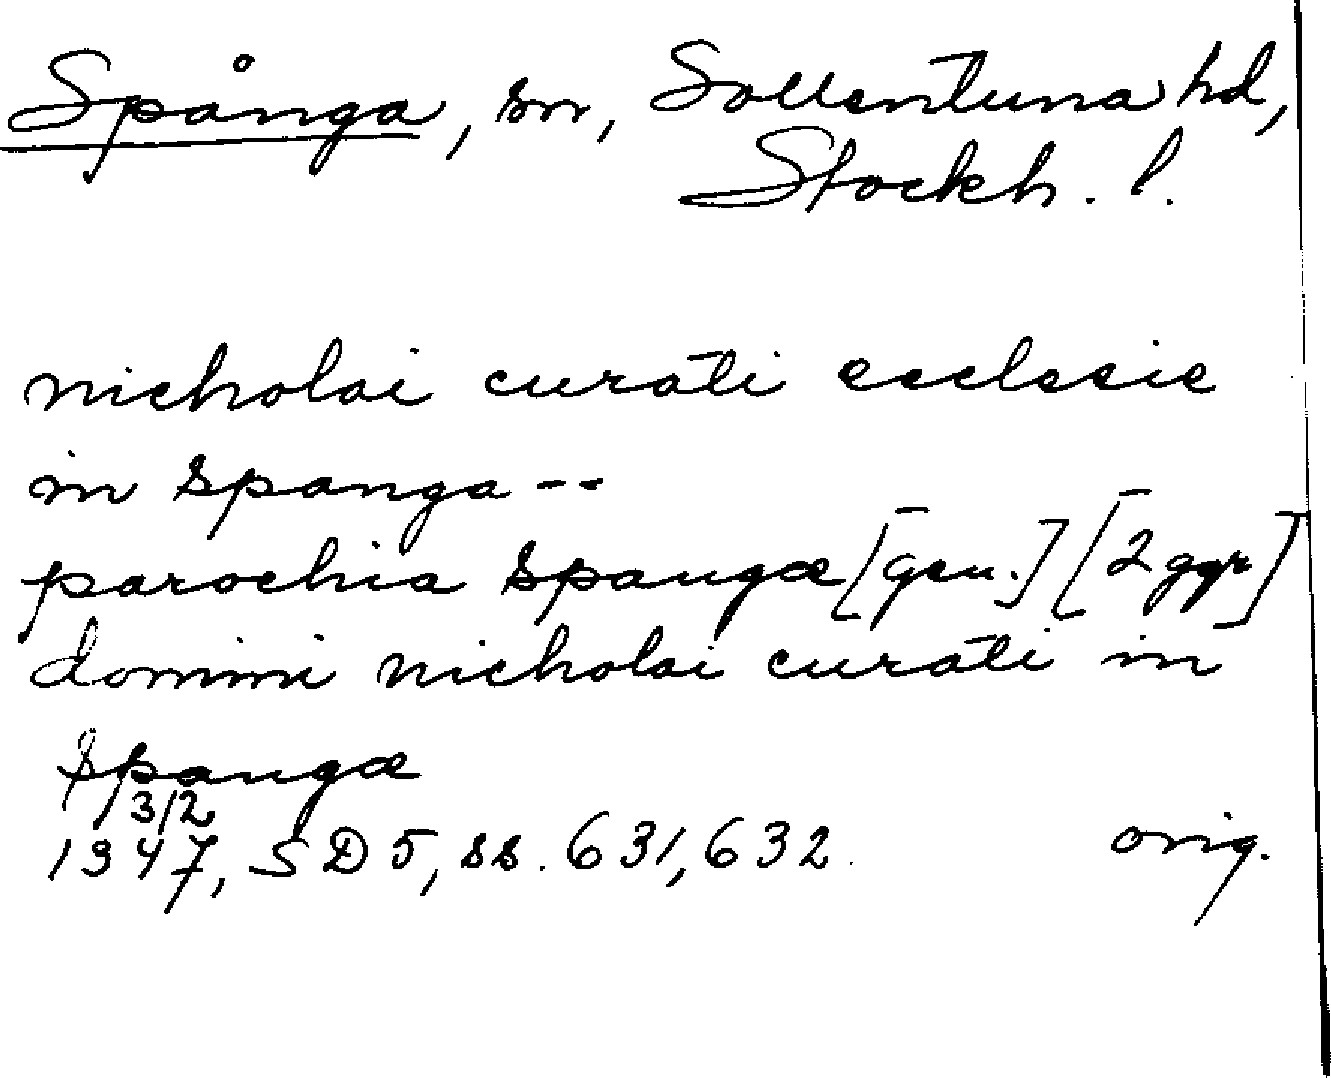 Spånga, sn, Sollentuna hd,
Stockh. l.
nicholai curati ecclesie
in spanga --
parochia spangæ [gen.] [2 ggr]
domini nicholai curati in
spangæ
13/2
1347, SD 5, ss. 631, 632. orig.